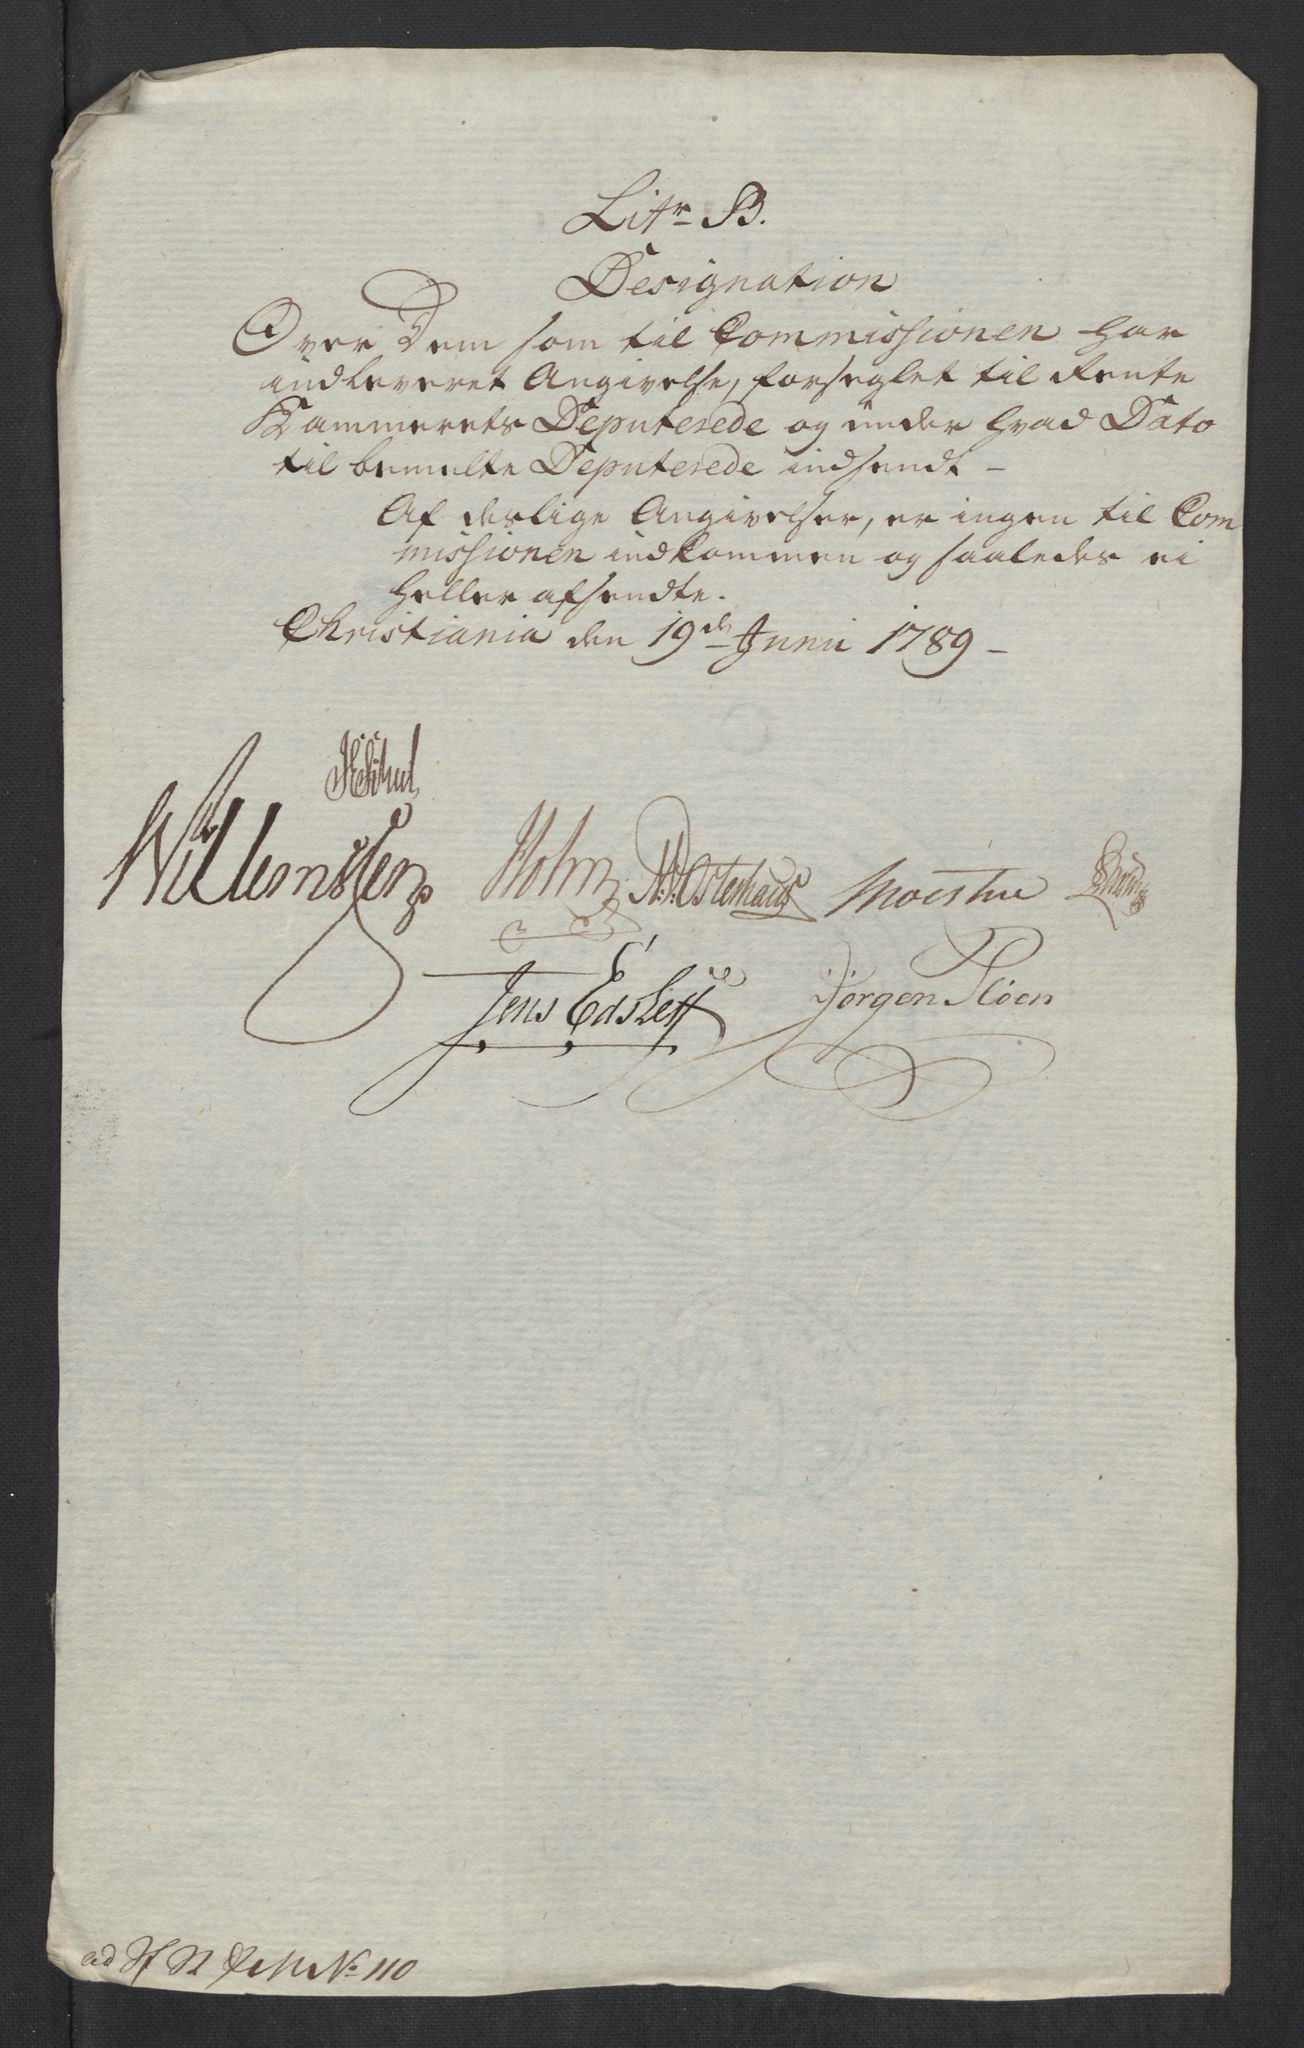 Litr B.
Designation
Over Dem som til Commissionen har
indleveret Angivelse, forseglet til Rente
Kammerets Deputerede og under hvad Dato
til bemelte Deputerede indsendt -
Af deslige Angivelser, er ingen til Com
missionen indkommen og saaledes ei
heller afsendte.
Christiania den 19de Junii 1789 -
Willemssen Holm Osterhaus Moestue
Jens Edsleff Jørgen Pløen
ad No 110